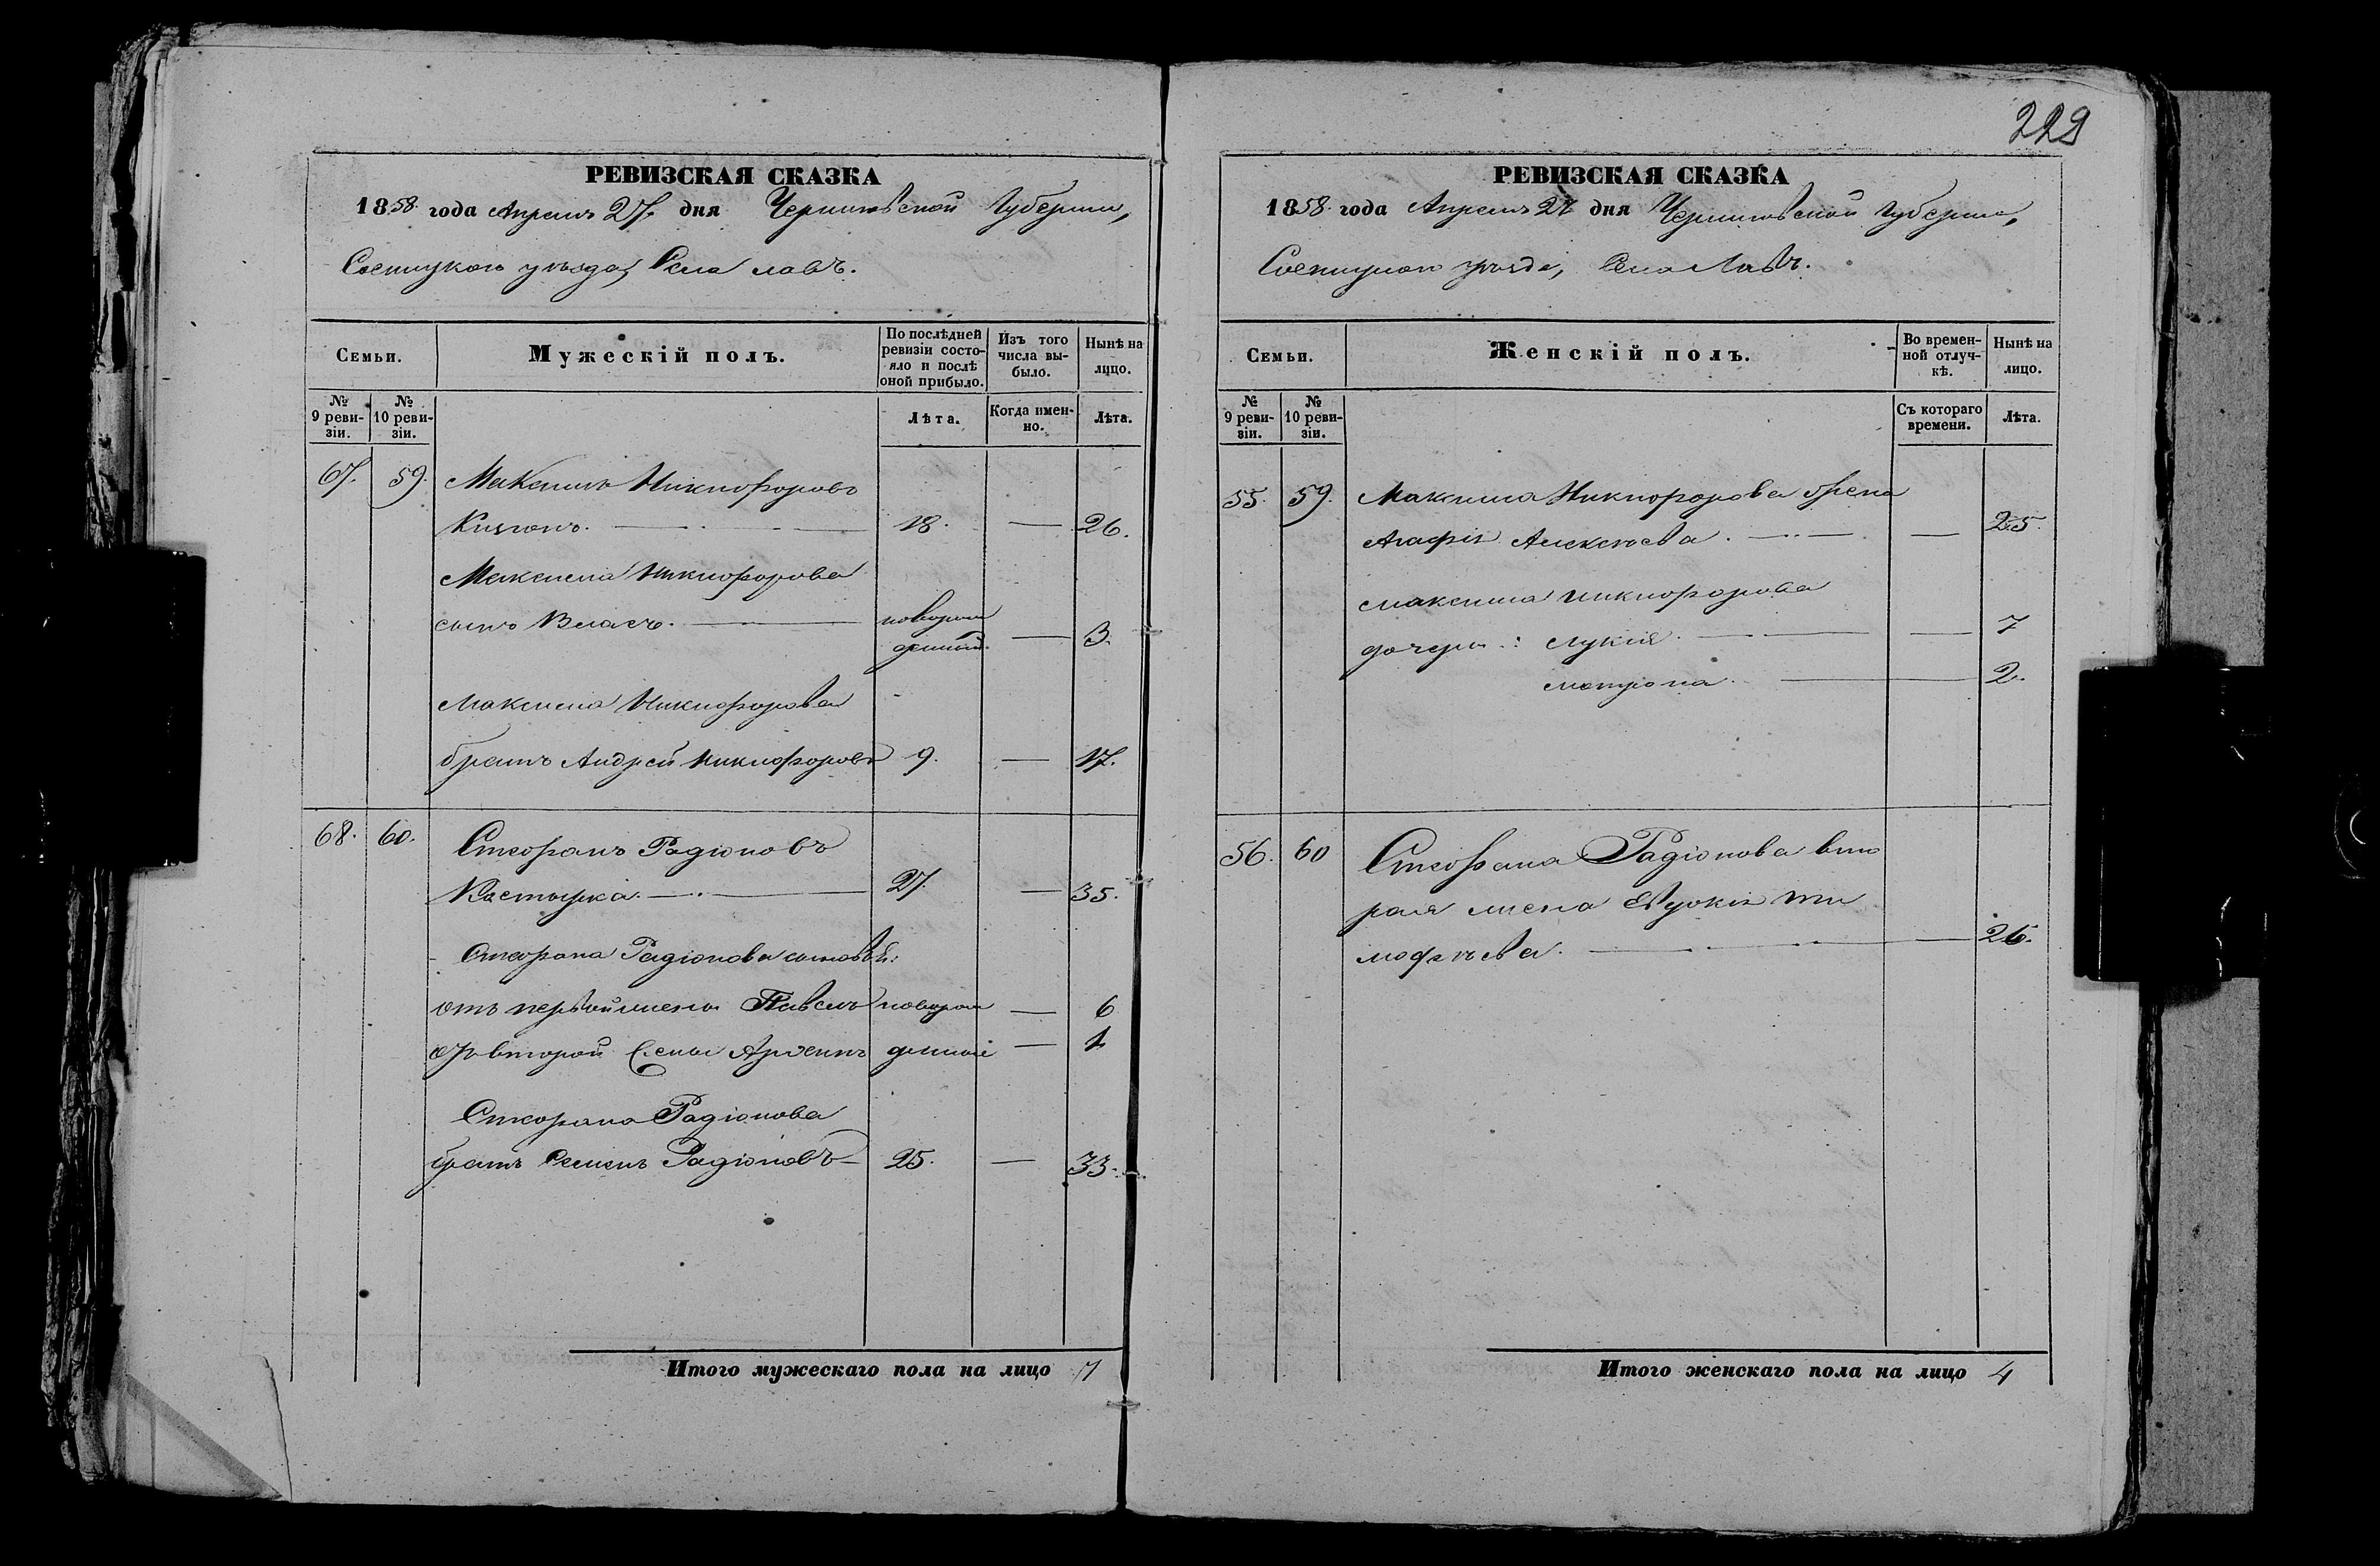 229
РЕВИЗСКАЯ СКАЗКА
1858 года Апреля 27 дня Черниговской Губернии,
Сосницкого уезда, Села Лавъ.
Семьи.
Мужескій полъ.
По послѣдней ревизіи состояло и послѣ оной прибыло.
Изъ того числа выбыло.
Нынѣ на лицо.
№ 9 ревизіи.
№ 10 ревизіи.
Лѣта.
Когда именно.
Лѣта.
67. 59. Максимъ Никифоровъ
18. — 26.
Максима Никифорова
сынъ Власъ. — новорож
денный — 3.
Максима Никифорова
братъ Андрей Никифоровъ 9. — 17.
68. 60. Стефанъ Радіоновъ
Костырка. — 27. — 35.
Стефана Радіонова сыновья:
отъ первой жены Павелъ новорож — 6
отъ второй жены денные — 1
Стефана Радіонова
братъ Семенъ Радіоновъ — 25. — 33.
Итого мужескаго пола на лицо 7
РЕВИЗСКАЯ СКАЗКА
1858 года Апреля 27 дня Черниговской Губернии,
Сосницкого уезда, Села Лавъ.
Семьи.
Женскій полъ.
Во временной отлучкѣ.
Нынѣ на лицо.
№ 9 ревизіи.
№ 10 ревизіи.
Съ котораго времени.
Лѣта.
55. 59. Максима Никифорова жена
Агафія Алексѣева. — — 25.
Максима Никифорова
дочери: Лукія. — — 7
Матрона. — 2.
56. 60 Стефана Радіонова вто
рая жена Евдокія Ти
мофѣева. — 26.
Итого женскаго пола на лицо 4